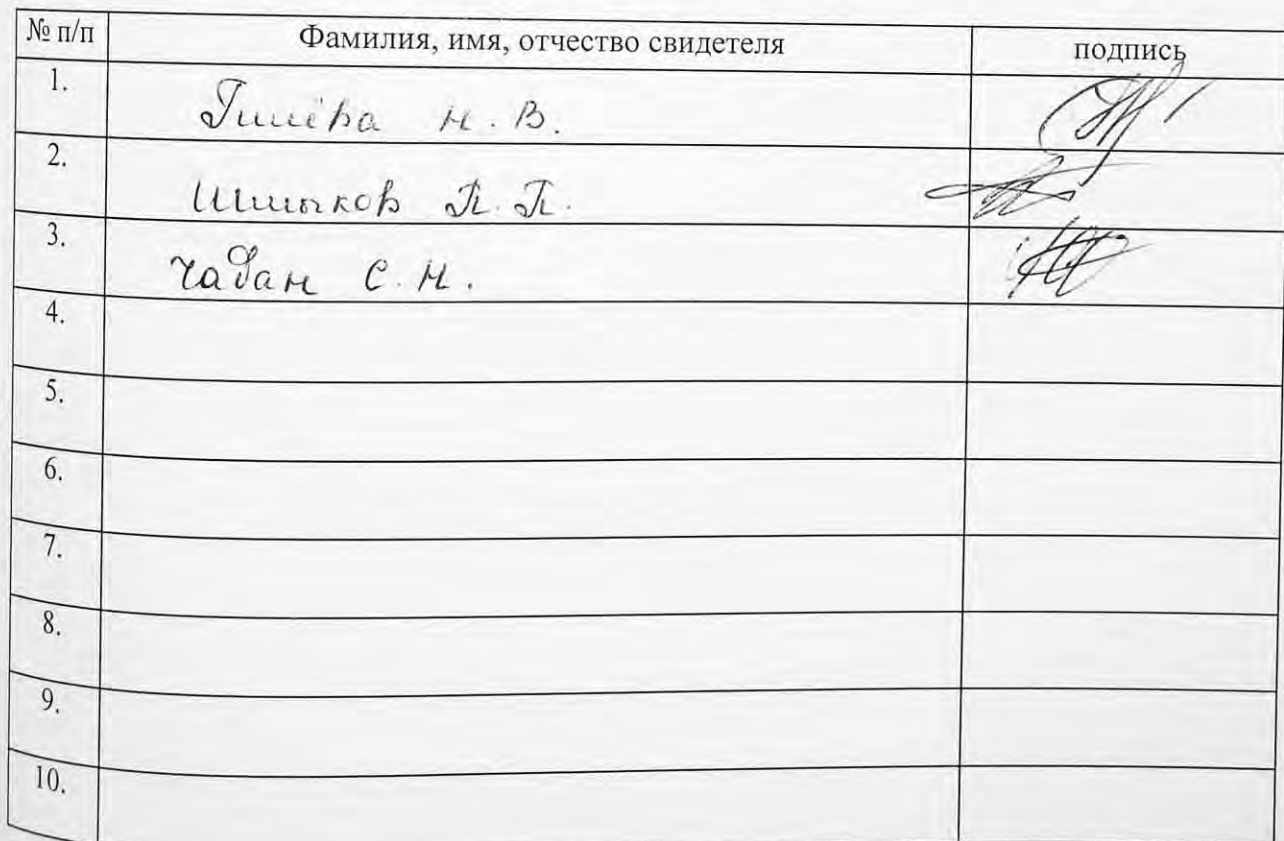 № п/п Фамилия, имя, отчество свидетеля подпись
1. Н. В.
2. П. П.
3. Чабан С. Н.
4.
5.
6.
7.
8.
9.
10.